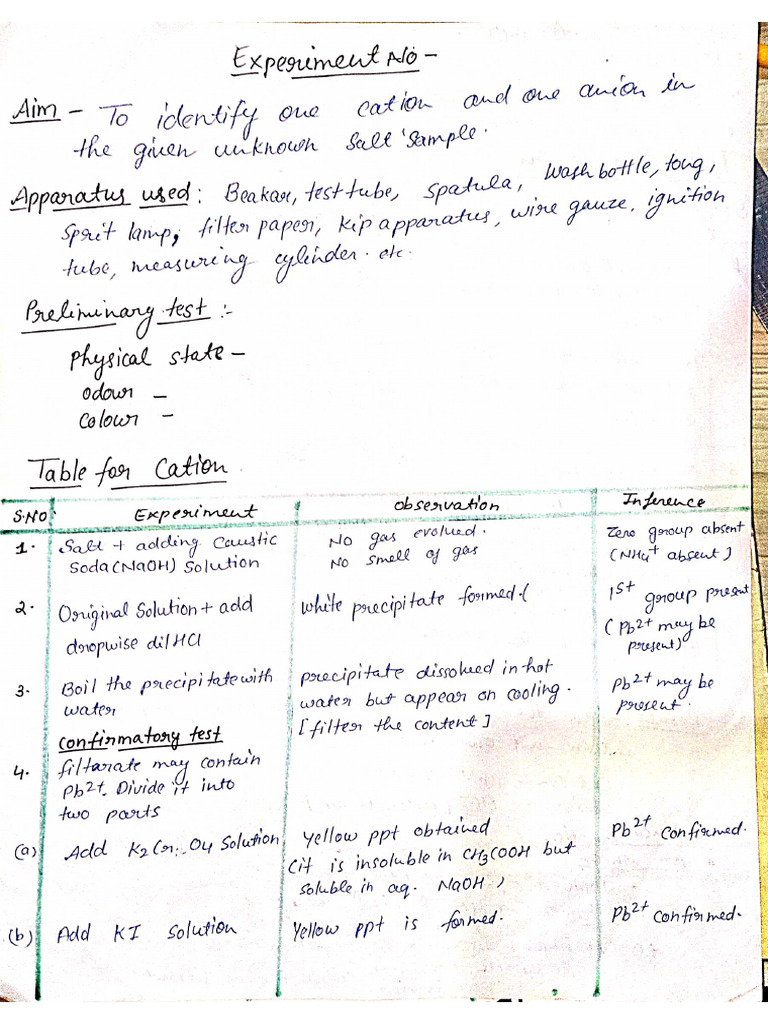 Experiment No -
Aim - To identify one cation and one anion in
the given unknown Salt Sample.
Apparatus used: Beakar, test tube, spatula, wash bottle, tong,
Sprit lamp, filter paper, Kip apparatus, wire gauze, ignition
tube, measuring cylinder. etc.
Preliminary test :-
Physical state -
odour -
Colour -
Table for Cation
S.NO Experiment Observation Inference
1. Salt + adding Caustic Soda (NaOH) Solution
No gas evolued.
No smell of gas
Zero group absent
(NH4+ absent)
2. Original Solution + add
dropwise dil HCl
White precipitate formed.(
1st group present
(Pb2+ may be
present)
3. Boil the precipitate with
water
precipitate dissolued in hot
water but appear on cooling.
[filter the content]
Pb2+ may be
present.
Confirmatory test
4. filtarate may contain
Pb2+. Divide it into
two parts
(a) Add K2Cr:O4 Solution
Yellow ppt obtained
(it is insoluble in CH3COOH but
soluble in aq. NaOH)
Pb2+ Confirmed.
(b) Add KI Solution
Yellow ppt is formed.
Pb2+ Confirmed.